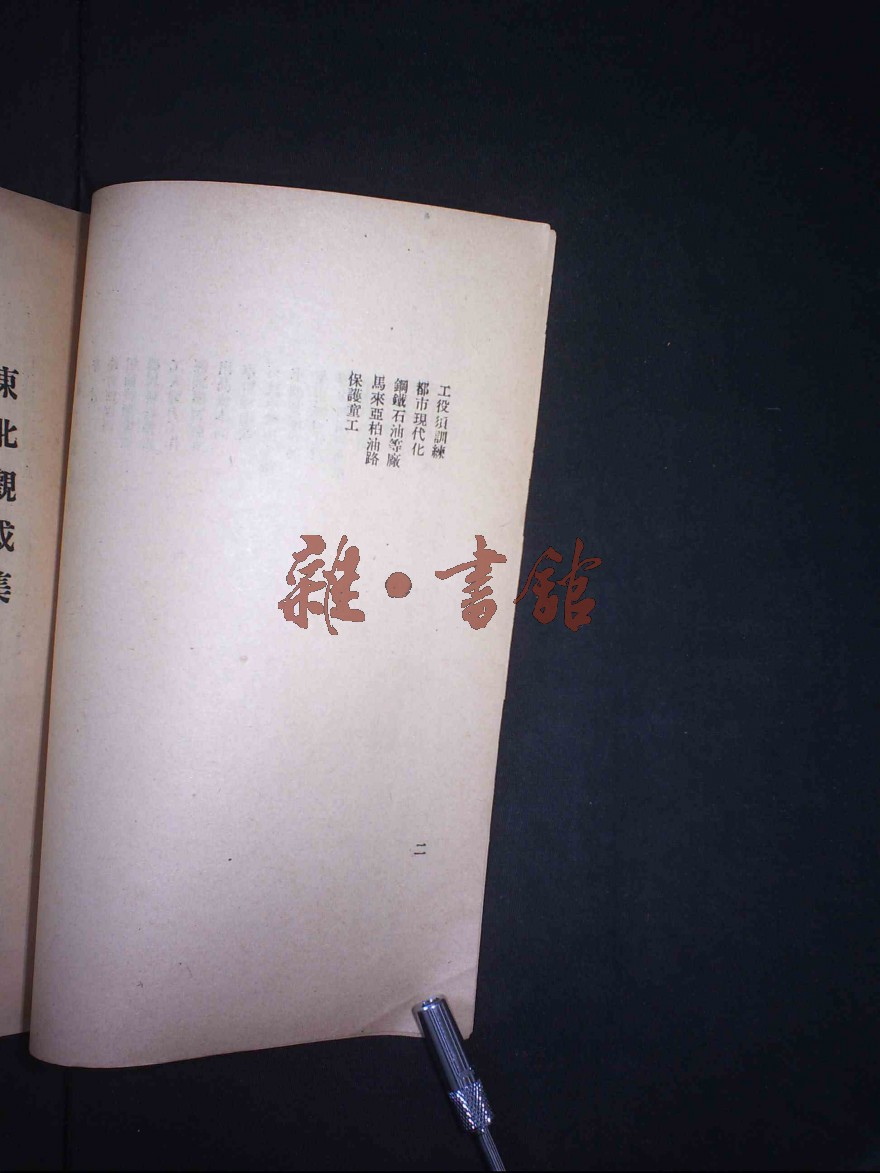 工役須訓練
都市現代化
鋼鐵石油等廠
馬來亞柏油路
保護童工
二
東北觀成集
雜·書館